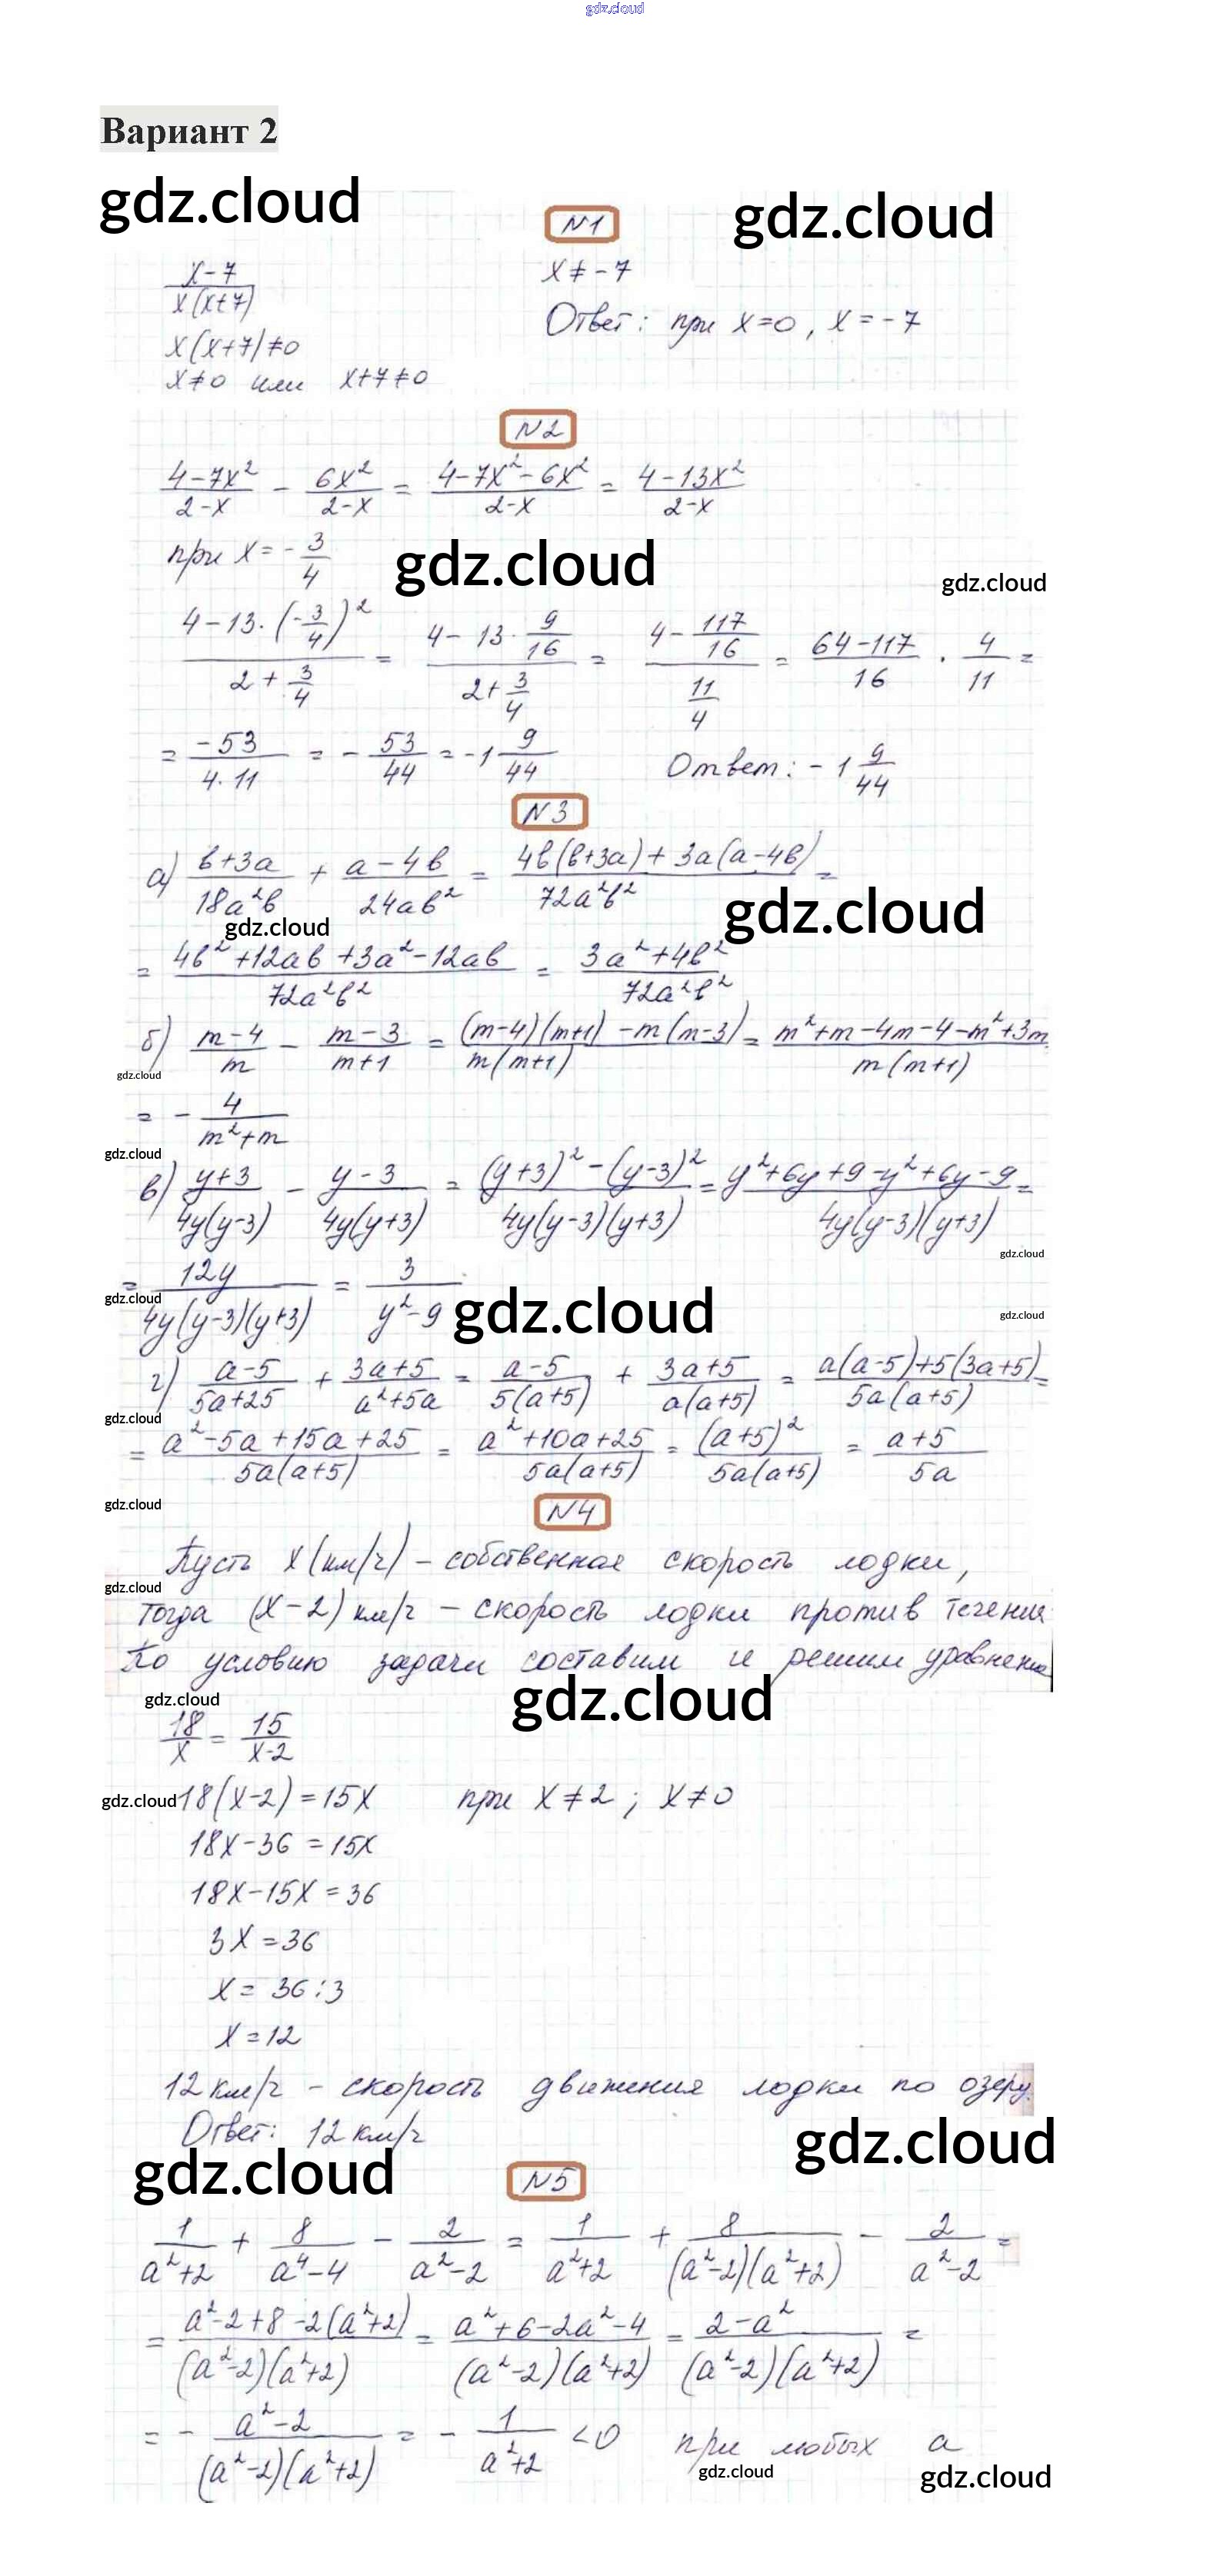 gdz.cloud
Вариант 2
gdz.cloud
gdz.cloud
N1
(x-7)/(x(x+7))
x(x+7)≠0
x≠0 или x+7≠0
x≠-7
Ответ: при x=0, x=-7
N2
(4-7x²)/(2-x) - 6x²/(2-x) = (4-7x²-6x²)/(2-x) = (4-13x²)/(2-x)
при x=-3/4
gdz.cloud
gdz.cloud
(4-13·(-3/4)²)/(2+3/4) = (4-13·9/16)/(2+3/4) = (4-117/16)/(11/4) = (64-117)/16 · 4/11 =
= -53/(4·11) = -53/44 = -1 9/44 Ответ: -1 9/44
N3
а) (b+3a)/(18a²b) + (a-4b)/(24ab²) = (4b(b+3a)+3a(a-4b))/(72a²b²) =
gdz.cloud
gdz.cloud
= (4b²+12ab+3a²-12ab)/(72a²b²) = (3a²+4b²)/(72a²b²)
б) (m-4)/m - (m-3)/(m+1) = ((m-4)(m+1)-m(m-3))/(m(m+1)) = (m²+m-4m-4-m²+3m)/(m(m+1))
gdz.cloud
= -4/(m²+m)
gdz.cloud
в) (y+3)/(4y(y-3)) - (y-3)/(4y(y+3)) = ((y+3)²-(y-3)²)/(4y(y-3)(y+3)) = (y²+6y+9-y²+6y-9)/(4y(y-3)(y+3)) =
gdz.cloud
= 12y/(4y(y-3)(y+3)) = 3/(y²-9)
gdz.cloud
gdz.cloud
gdz.cloud
г) (a-5)/(5a+25) + (3a+5)/(a²+5a) = (a-5)/(5(a+5)) + (3a+5)/(a(a+5)) = (a(a-5)+5(3a+5))/(5a(a+5)) =
gdz.cloud
= (a²-5a+15a+25)/(5a(a+5)) = (a²+10a+25)/(5a(a+5)) = (a+5)²/(5a(a+5)) = (a+5)/(5a)
gdz.cloud
N4
Пусть x (км/ч) - собственная скорость лодки,
gdz.cloud
тогда (x-2) км/ч - скорость лодки против течения
По условию задачи составим и решим уравнение
gdz.cloud
gdz.cloud
18/x = 15/(x-2)
gdz.cloud
18(x-2)=15x при x≠2; x≠0
18x-36=15x
18x-15x=36
3x=36
x=36:3
x=12
12 км/ч - скорость движения лодки по озеру.
Ответ: 12 км/ч
gdz.cloud
gdz.cloud
N5
1/(a²+2) + 8/(a⁴-4) - 2/(a²-2) = 1/(a²+2) + 8/((a²-2)(a²+2)) - 2/(a²-2) =
= (a²-2+8-2(a²+2))/((a²-2)(a²+2)) = (a²+6-2a²-4)/((a²-2)(a²+2)) = (2-a²)/((a²-2)(a²+2)) =
= -(a²-2)/((a²-2)(a²+2)) = -1/(a²+2) <0 при любых a
gdz.cloud
gdz.cloud